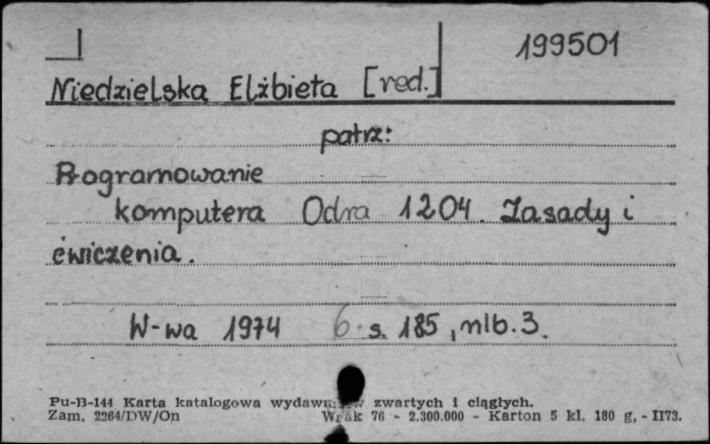 199501
Niedzielska Elżbieta [red.]
patrz:
Programowanie
komputera Odra 1204. Zasady i
ćwiczenia.
W-wa 1974 6. s. 185, nlb. 3.
Pu-B-144 Karta katalogowa wydawnictw zwartych i ciągłych.
Zam. 2264/DW/On Wrak 76 - 2.300.000 - Karton 5 kl. 180 g, - II73.